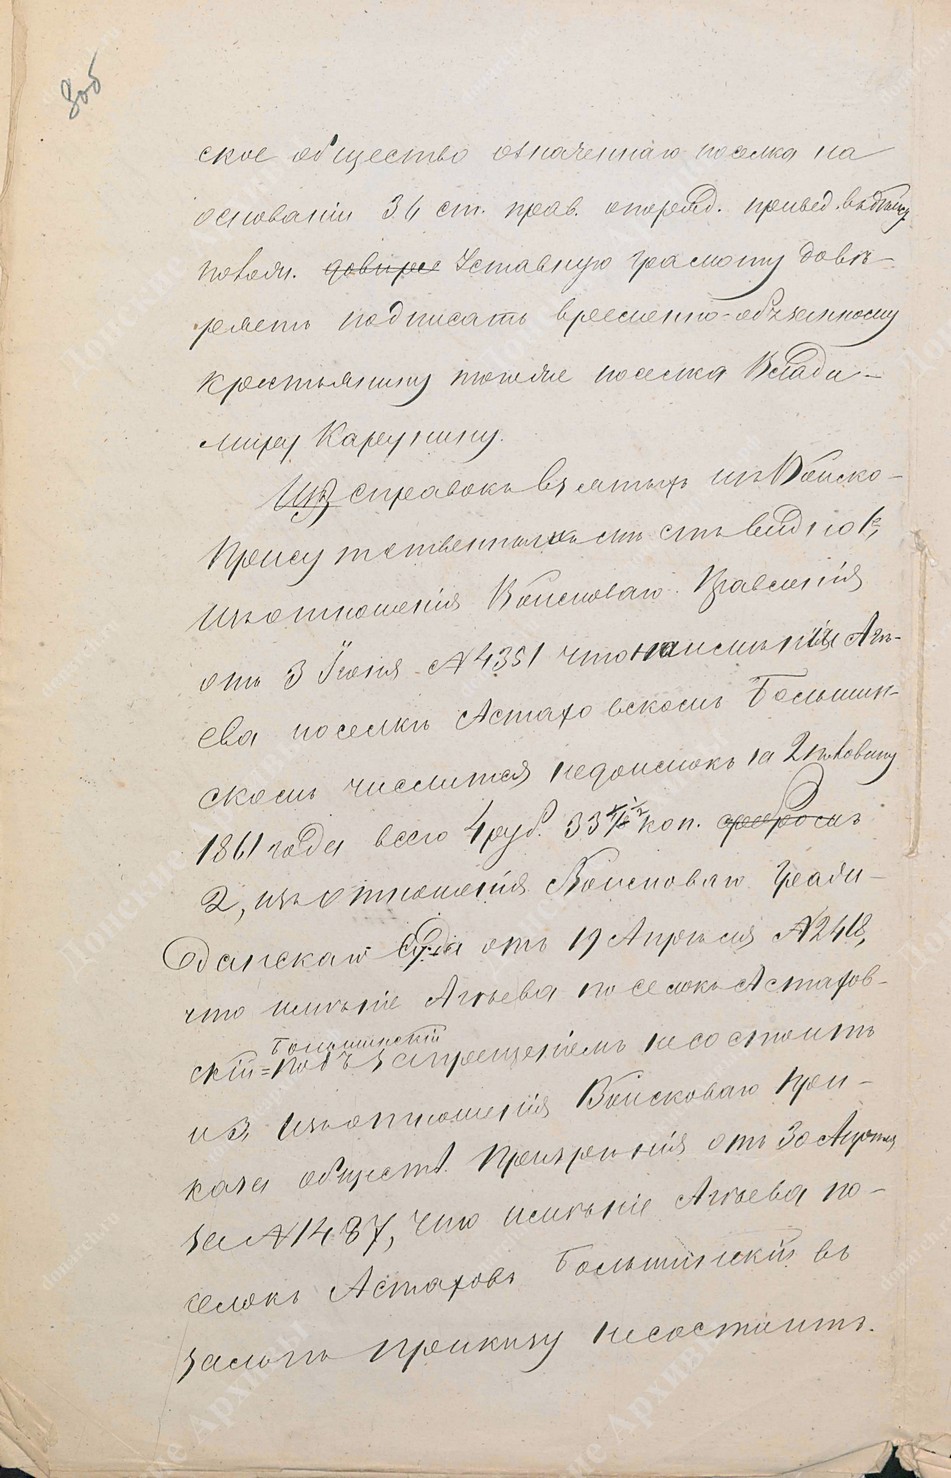 8об
ское общество означеннаго поселка на
основаніи 36 ст. прав. о поряд. привед. въ
полож. довѣряе Уставную грамоту довѣ-
ряетъ подписать временно-обязанному
крестьянину того же поселка Влади-
миру Карпунину.
Изъ справокъ взятыхъ изъ Войско-
Присутственныхъ мѣстъ видно 1е,
изъ отношенія Войсковаго Правленія
отъ 3 Іюня №4351 что на имѣніи Агѣ-
ева поселкѣ Астаховскомъ Большин-
скомъ числится недоимокъ за 2 половину
1861 года всего 4 руб. 33 1/2 коп. серебромъ
2, изъ отношенія Войсковаго Гражд-
данскаго Суда отъ 19 Апрѣля №2418,
что имѣніе Агѣева поселокъ Астахов-
Большинскій
скій=подъ запрещеніемъ несостоитъ
и 3, изъ отношенія Войсковаго При-
каза обществ. Призренія отъ 30 Апрѣля
за №1487, что имѣніе Агѣева по-
селокъ Астаховъ Большинскій въ
залогѣ приказу несостоитъ.